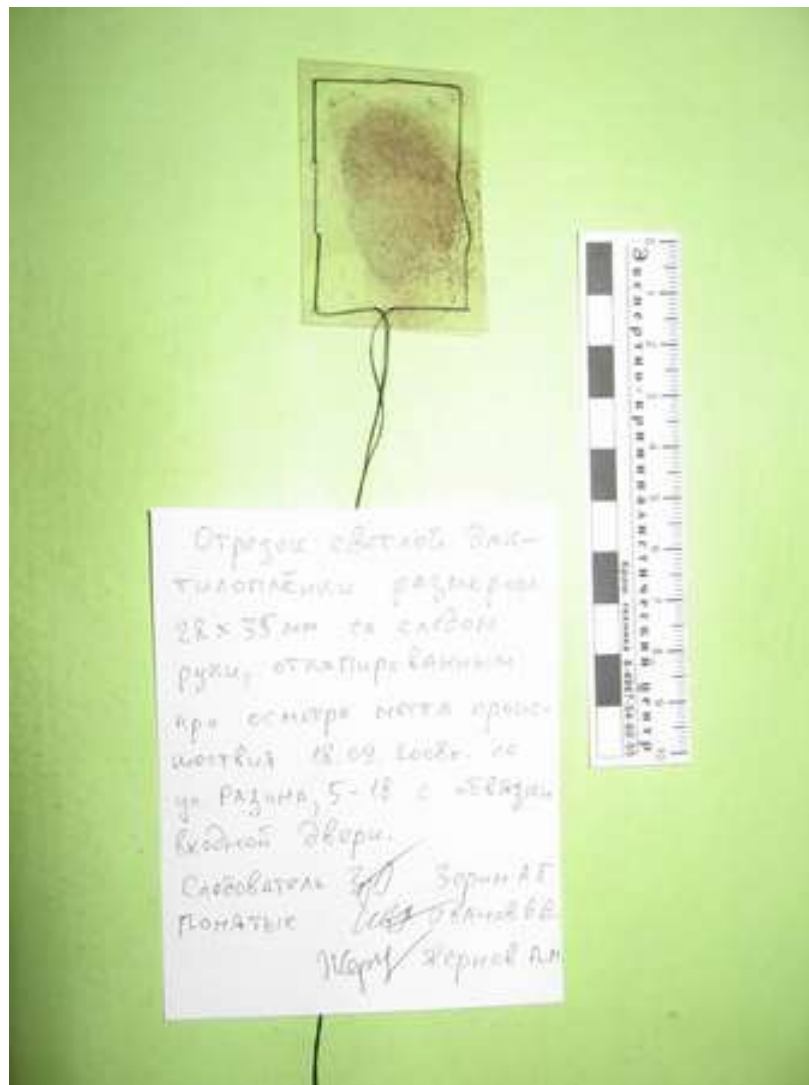 Экспертно-криминалистический центр
0 1 2 3 4 5 6 7 8 9 10
Отрезок светлой дак-
тилоплёнки размером
28 x 35 мм со следом
руки, откапированным
при осмотре места проис-
шествия 18.09.2008г. по
ул. Разина, 5-18 с
входной двери.
Следователь Зорин А.Б.
Понятые
Жернов П.М.